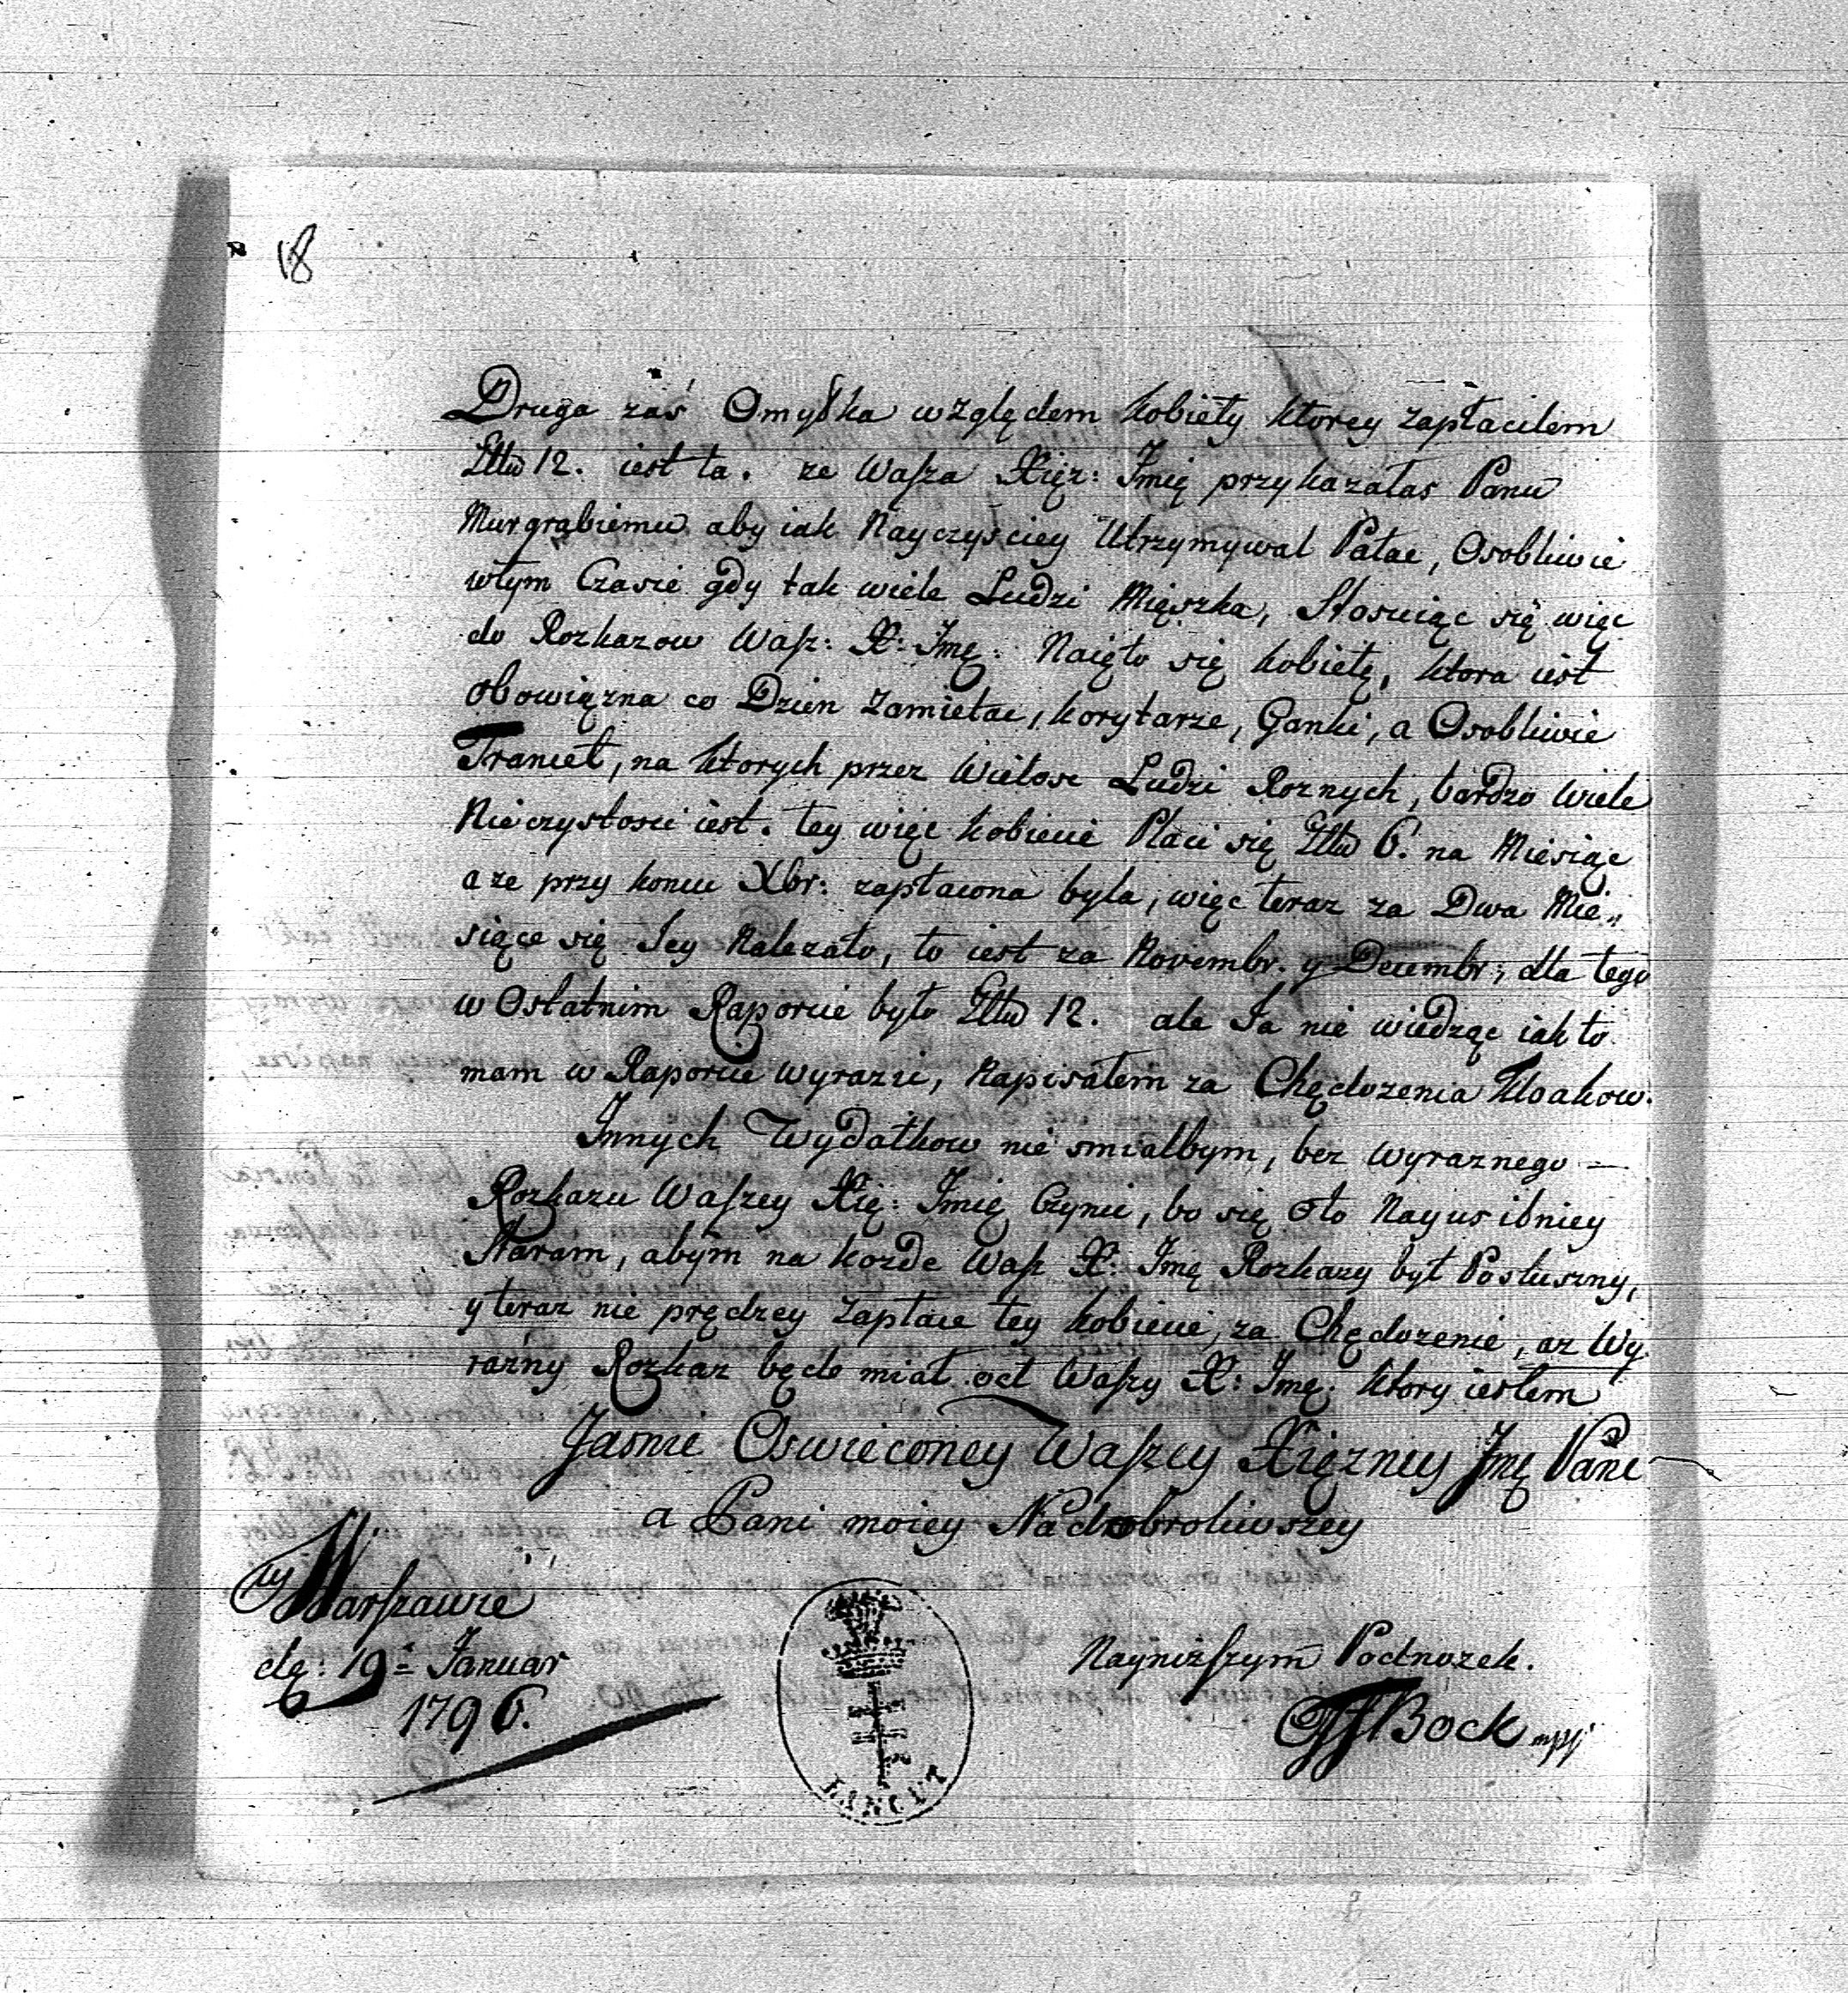 18
Druga zaś Omyłka względem kobiety ktorey zapłacilem
Złł 12. iest ta. ze Wasza Xięz: Jmię przykazałas Panu
Murgrabiemu aby iak Nayczyściey Utrzymywal Pałac, Osobliwie
wtym Czasie gdy tak wiele Ludzi Mięszka, Stosuiąc się więc
do Rozkazow Wasz: X: Jmę: Naięto się kobietę, ktora iest
obowiązna co Dzien Zamietac, korytarze, Ganki, a Osobliwie
Traniet, na ktorych przez Wielosc Ludzi Roznych, bardzo wiele
Nieczystosci iest. tey więc kobiecie Płaci się Złł 6. na Miesiąc
a ze przy koncu Xbr: zapłacona byla, więc teraz za Dwa Mie„
siące się Jey Nalezało, to iest za Novembr. y Decembr; dla tego
w Ostatnim Raporcie było Złł 12. ale Ja nie wiedząc iak to
mam w Raporcie wyrazic, Napisałem za Chędozenia Kloakow.
Jnnych Wydatkow nie smialbym, bez wyraznego —
Rozkazu Waszey Xię: Jmię Czynic, bo się oto Nayusilniey
Staram, abym na kozde Wasz X: Jmę Rozkazy był Posłuszny,
y teraz nie prędzey Zapłace tey kobiecie, za Chędozenie, az Wy
razny Rozkaz będe miał od Waszy X: Jmę: ktory iestem
Jasnie Oswieconey Waszey Xięzney Jmę Pani
a Pani moiey Nadobroliwszey
w Warszawie
dę: 19= Januar
1796.
Nayniższym Podnozek.
Bock mpp
ŁAŃCUT